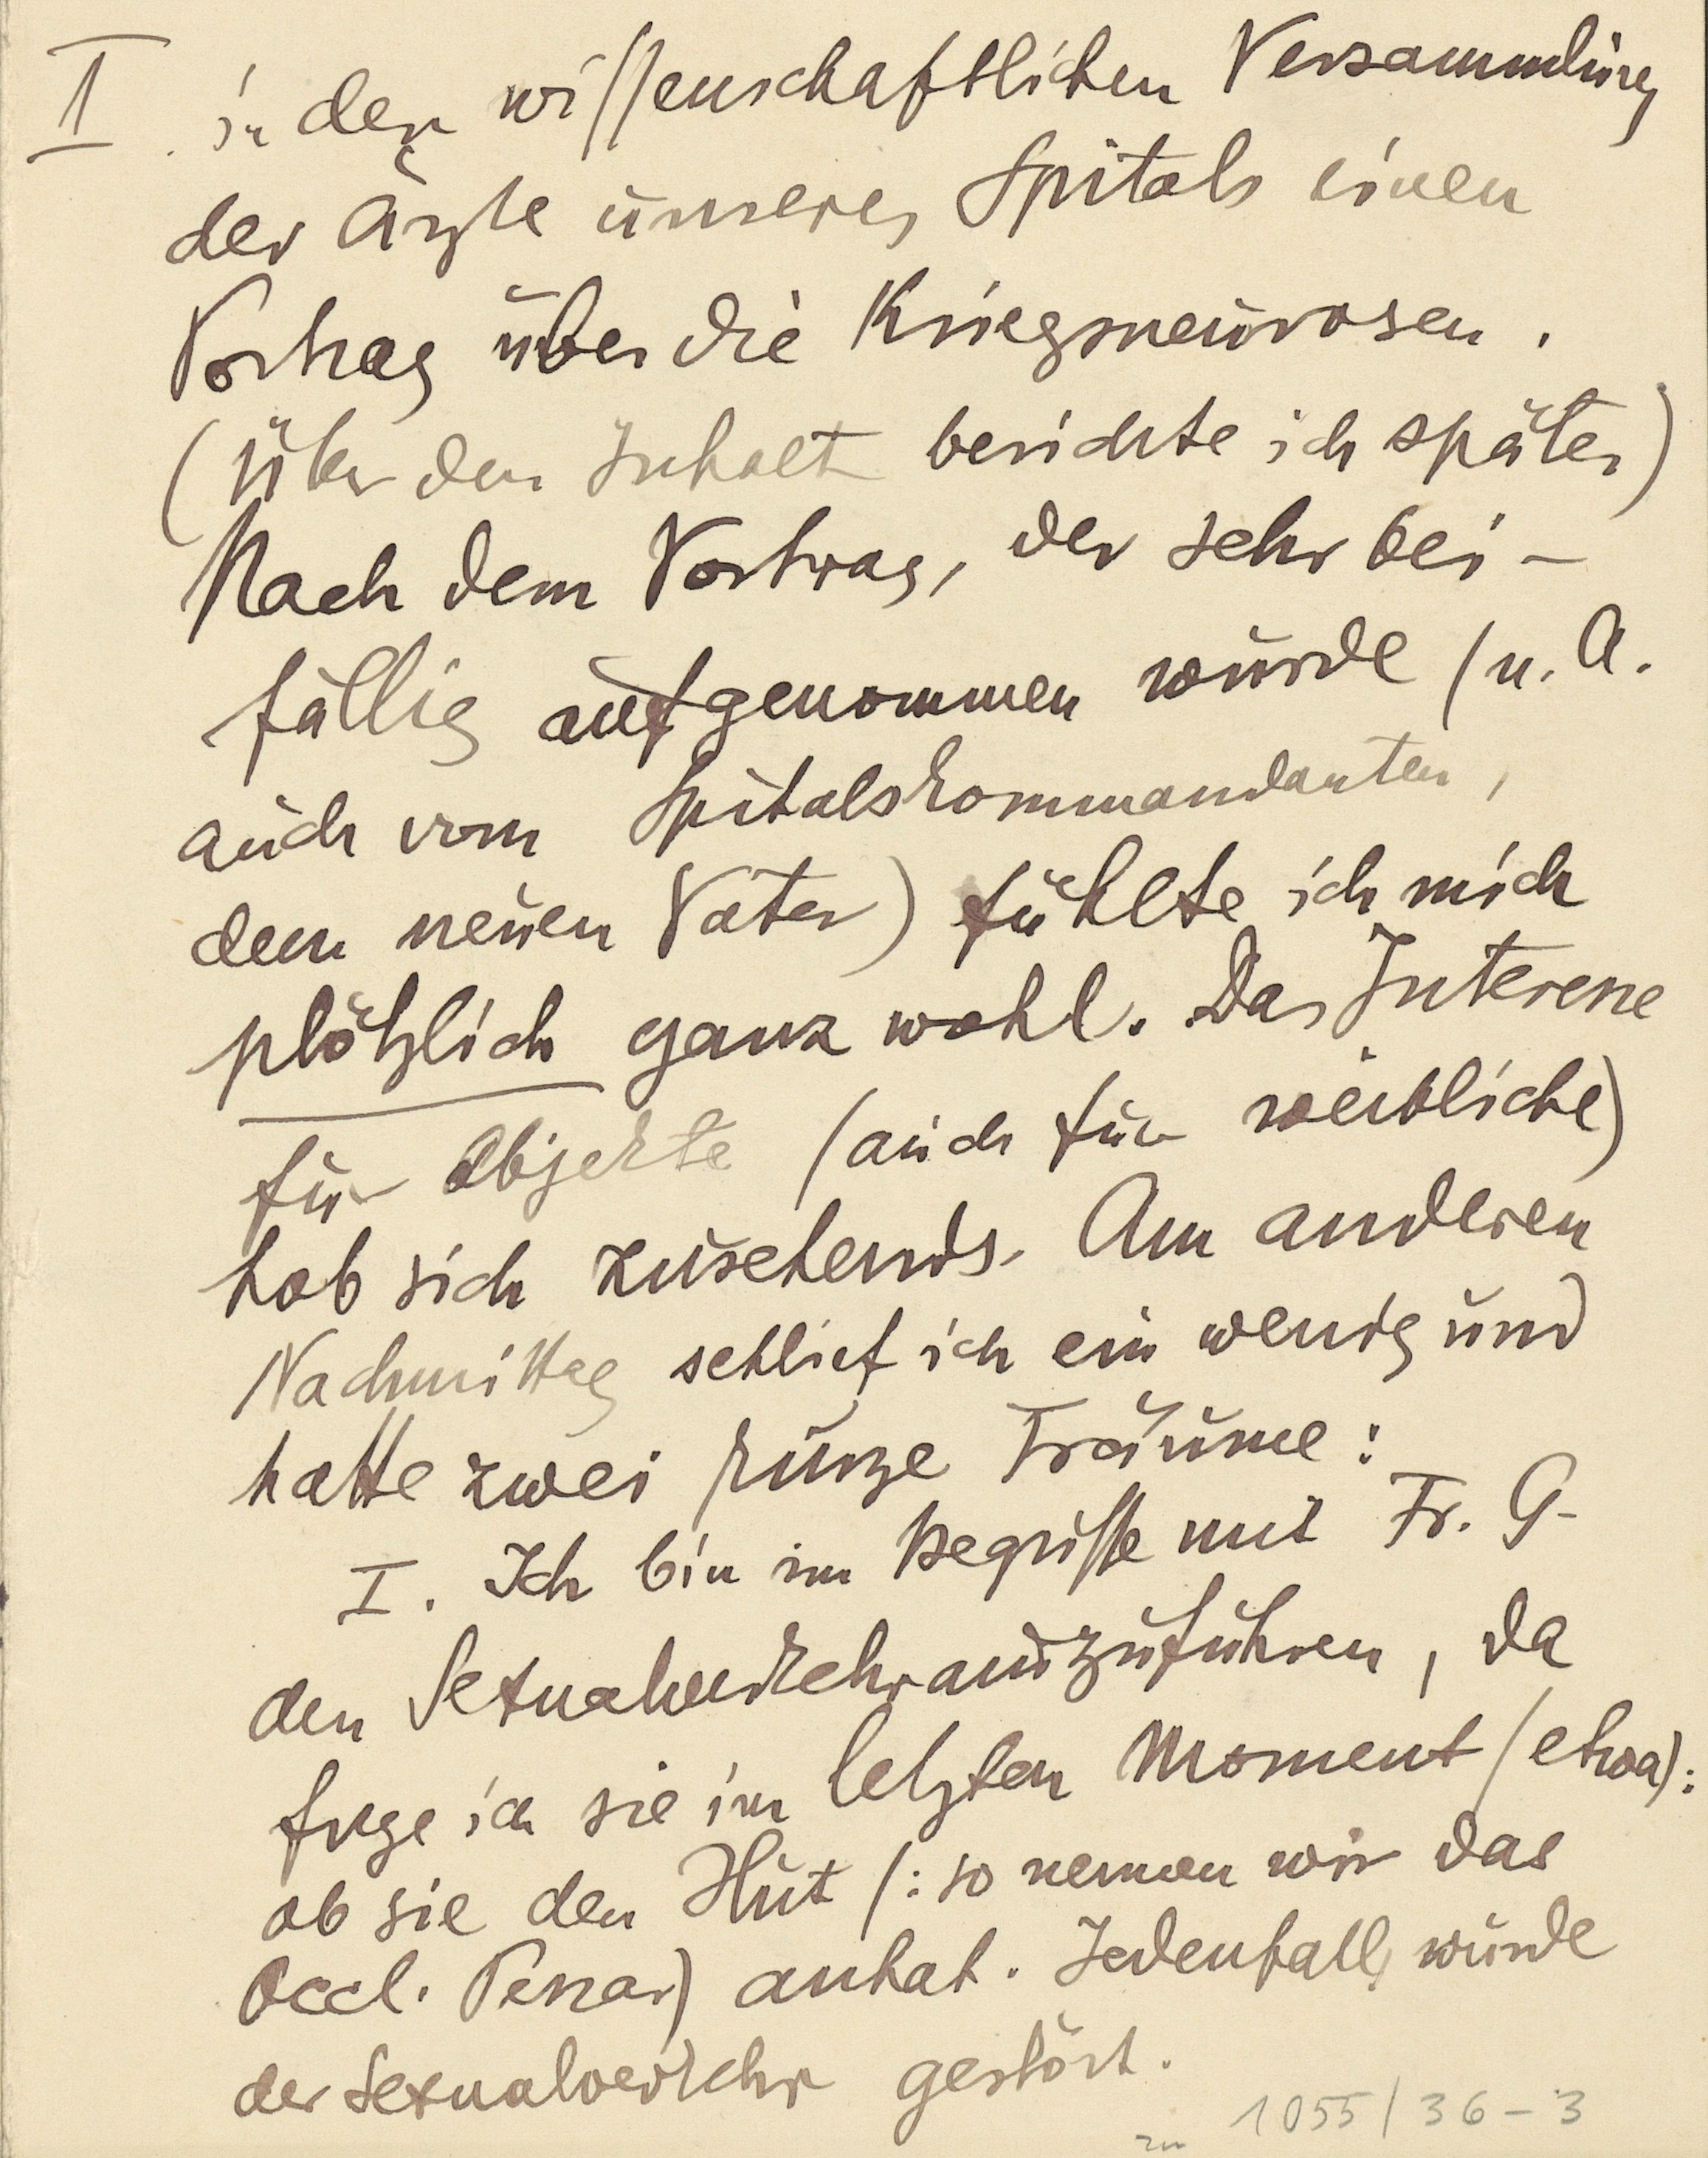 I. in der wissenschaftlichen Versammlung
der Ärzte unseres Spitals einen
Vortrag über die Kriegsneurosen.
(Über den Inhalt berichte ich später)
Nach dem Vortrag, der sehr bei-
fällig aufgenommen wurde (u. A.
auch vom Spitalskommandanten,
dem neuen Vater) fühlte ich mich
plötzlich ganz wohl. Das Interesse
für Objekte (auch für weibliche)
hob sich zusehends. Am anderen
Nachmittag schlief ich ein wenig und
hatte zwei kurze Träume:
I. Ich bin im Begriffe mit Fr. G.
den Sexualverkehr auszuführen, da
frage ich sie im letzten Moment (etwa):
ob sie den Hut (: so nennen wir das
Occl. Pessar) anhat. Jedenfalls wurde
der Sexualverkehr gestört.
zu 1055/36-3